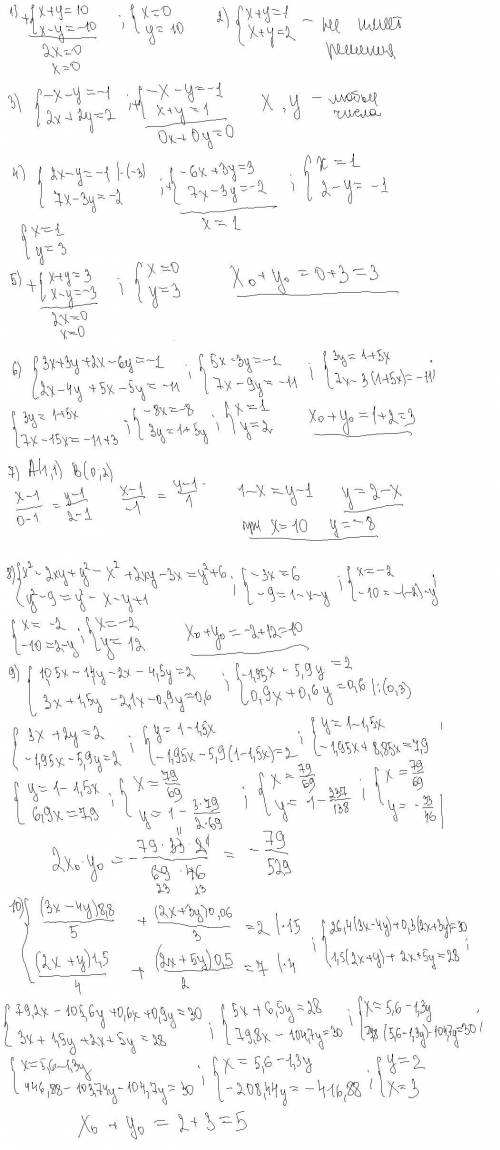 1) + { x+y=10 ; x-y=-10 ; { x=0 ; y=10 2) { x+y=1 ; x+y=2 – не имеет решения
2x=0
x=0
3) { -x-y=-1 ; 2x+2y=2 ; + { -x-y=-1 ; x+y=1 x, y – любые числа
0x+0y=0
4) { 2x-y=-1 |·(-3) ; 7x-3y=-2 ; + { -6x+3y=3 ; 7x-3y=-2 ; { x=1 ; 2-y=-1
x=1
{ x=1 ; y=3
5) + { x+y=3 ; x-y=-3 ; { x=0 ; y=3 x₀+y₀=0+3=3
2x=0
x=0
6) { 3x+3y+2x-6y=-1 ; 2x-4y+5x-5y=-11 ; { 5x-3y=-1 ; 7x-9y=-11 ; { 3y=1+5x ; 7x-3(1+5x)=-11 ;
{ 3y=1+5x ; 7x-15x=-11+3 ; { -8x=-8 ; 3y=1+5y ; { x=1 ; y=2 x₀+y₀=1+2=3
7) A(1,1) B(0;2)
(x-1)/(0-1) = (y-1)/(2-1) (x-1)/(-1) = (y-1)/1 1-x=y-1 y=2-x
при x=10 y=-8
8) { x²-2xy+y²-x²+2xy-3x=y²+6 ; y²-9=y²-x-y+1 ; { -3x=6 ; -9=1-x-y ; { x=-2 ; -10=-(-2)-y
{ x=-2 ; -10=2-y ; { x=-2 ; y=12 x₀+y₀=-2+12=10
9) { 10,5x-14y-2x-4,5y=2 ; 3x+1,5y-2,1x-0,9y=0,6 ; { -1,95x-5,9y=2 ; 0,9x+0,6y=0,6 |:(0,3)
{ 3x+2y=2 ; -1,95x-5,9y=2 ; { y=1-1,5x ; -1,95x-5,9(1-1,5x)=2 ; { y=1-1,5x ; -1,95x+8,85x=7,9 ;
{ y=1-1,5x ; 6,9x=79 ; { x=79/69 ; y=1-(3·79)/(2·69) ; { x=79/69 ; y=1-237/138 ; { x=79/69 ; y=-33/46
2x₀·y₀=-(79·33·21)/(69·46) = -79/529
11
23 23
10) { (3x-4y)8,8/5 + (2x+3y)0,06/3 = 2 |·15 ; (2x+y)1,5/4 + (2x+5y)0,5/2 = 7 |·4 ; { 26,4(3x-4y)+0,3(2x+3y)=30 ; 1,5(2x+y)+2x+5y=28 ;
{ 79,2x-105,6y+0,6x+0,9y=30 ; 3x+1,5y+2x+5y=28 ; { 5x+6,5y=28 ; 79,8x-104,7y=30 ; { x=5,6-1,3y ; 79,8(5,6-1,3y)-104,7y=30 ;
{ x=5,6-1,3y ; 446,88-103,74y-104,7y=30 ; { x=5,6-1,3y ; -208,44y=-416,88 ; { y=2 ; x=3
x₀+y₀=2+3=5